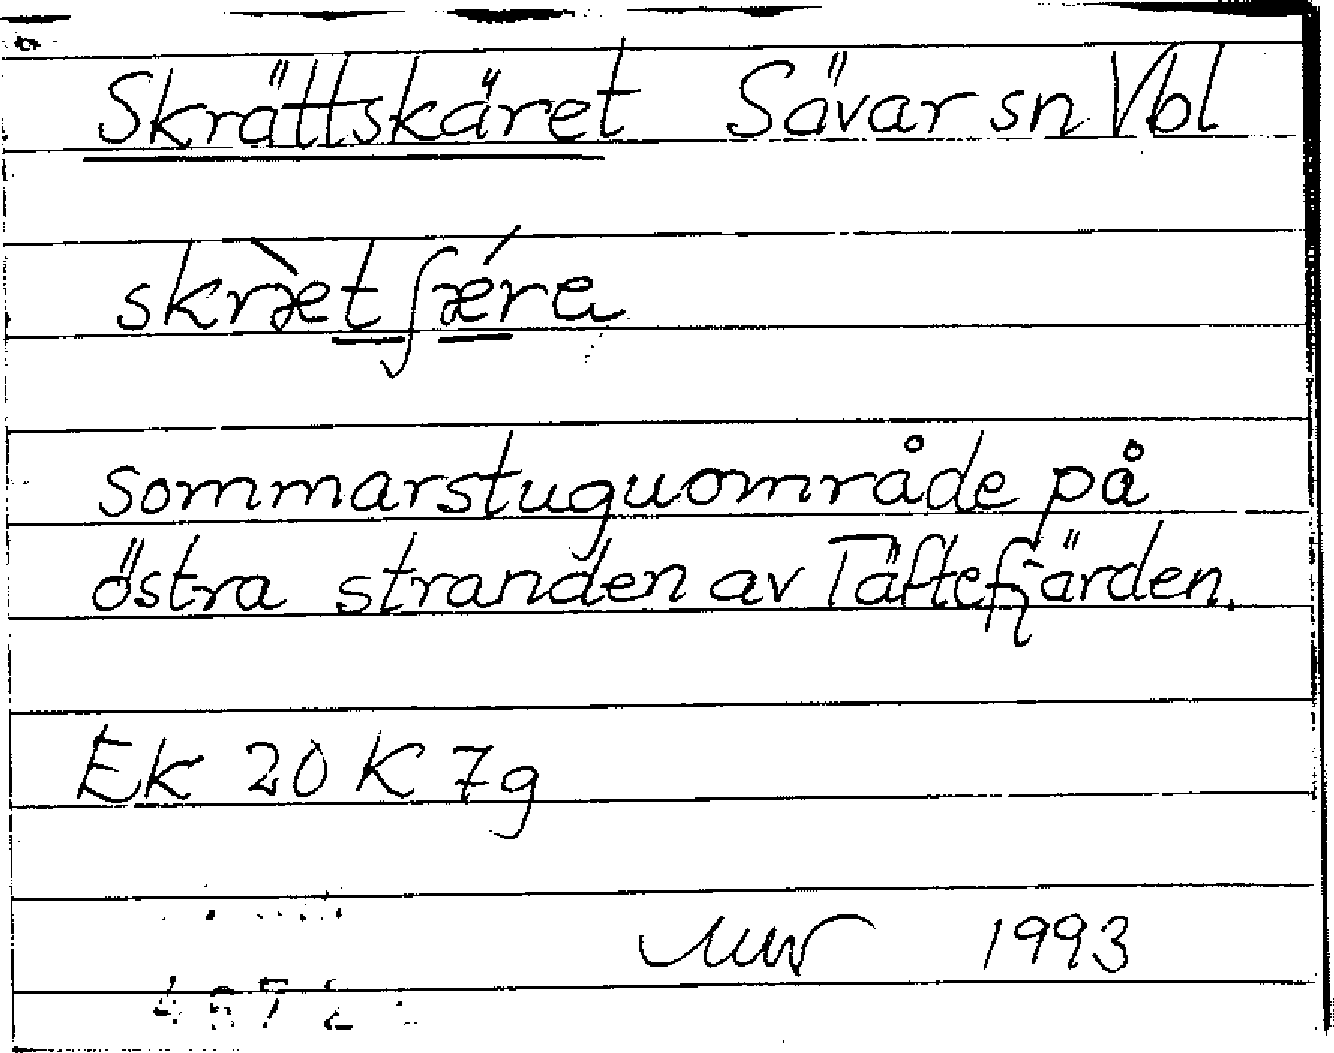 Skrättskäret Sävar sn Vbl
skræ̀tʃǽra
sommarstuguområde på
östra stranden av Täftefjärden.
Ek 20 K 7g
1993